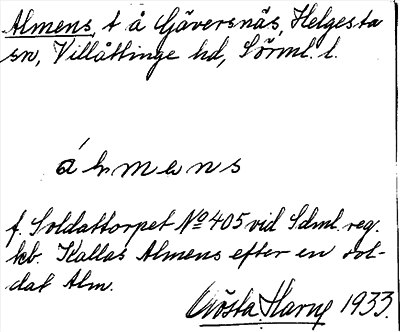 Almens, t å Gåversnäs, Helgesta
sn, Villåttinge hd, Sörml. l.
áʜmens
f. Soldattorpet No 405 vid Sdml. reg.
kb. Kallas Almens efter en sol-
dat Alm.
Gösta Harne 1933.